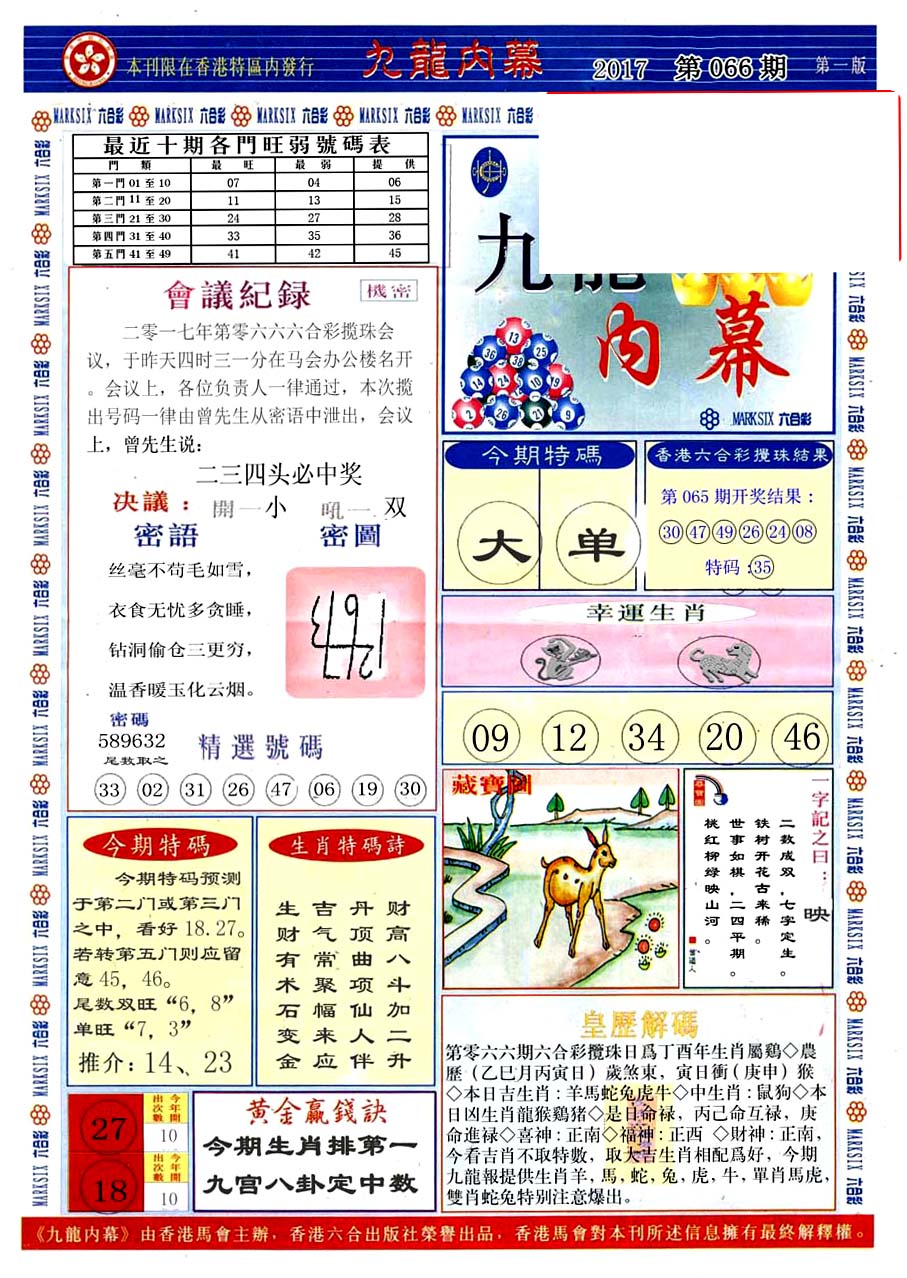 本刊限在香港特區内發行
九龍内幕
2017 第 066 期
第一版
MARKSIX 六合彩 MARKSIX 六合彩 MARKSIX 六合彩 MARKSIX 六合彩 MARKSIX 六合彩
最近十期各門旺弱號碼表
門 類 最 旺 最 弱 提 供
第一門 01 至 10 07 04 06
第二門 11 至 20 11 13 15
第三門 21 至 30 24 27 28
第四門 31 至 40 33 35 36
第五門 41 至 49 41 42 45
會議紀録
機密
二零一七年第零六六六合彩揽珠会
议，于昨天四时三一分在马会办公楼名开
。会议上，各位负责人一律通过，本次揽
出号码一律由曾先生从密语中泄出，会议
上，曾先生说：
二三四头必中奖
决議： 開一小 吼一双
密語 密圖
丝毫不苟毛如雪，
衣食无忧多贪睡，
钻洞偷仓三更穷，
温香暖玉化云烟。
密碼
589632
尾数取之
精選號碼
33 02 31 26 47 06 19 30
九龍
内幕
13
36 38 25
14 24 10 19
2 26 21 9
MARKSIX 六合彩
今期特碼
大 单
香港六合彩攪珠結果
第 065 期开奖结果：
30 47 49 26 24 08
特码：35
幸運生肖
09 12 34 20 46
藏寶圖
一字記之曰：映
二数成双，七字定生。
铁树开花古来稀。
世事如棋，二四平期。
桃红柳绿映山河。
今期特碼
今期特码预测
于第二门或第三门
之中，看好 18.27。
若转第五门则应留
意 45，46。
尾数双旺“6，8”
单旺“7，3”
推介：14、23
生肖特碼詩
生吉丹财
财气顶高
有常曲八
木聚项斗
石幅仙加
变来人二
金应伴升
27
今年開出次數
10
18
今年開出次數
10
黄金赢錢訣
今期生肖排第一
九宫八卦定中数
皇歷解碼
第零六六期六合彩攪珠日爲丁酉年生肖屬鷄◇農
歷（乙巳月丙寅日）歲煞東，寅日衝（庚申）猴
◇本日吉生肖：羊馬蛇兔虎牛◇中生肖：鼠狗◇本
日凶生肖龍猴鷄猪◇是日命禄，丙己命互禄，庚
命進禄◇喜神：正南◇福神：正西 ◇財神：正南，
今看吉肖不取特數，取大吉生肖相配爲好，今期
九龍報提供生肖羊，馬，蛇，兔，虎，牛，單肖馬虎，
雙肖蛇兔特别注意爆出。
《九龍内幕》由香港馬會主辦，香港六合出版社榮譽出品，香港馬會對本刊所述信息擁有最終解釋權。